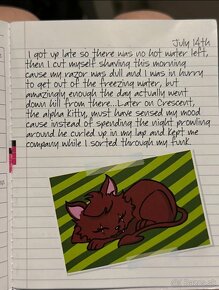 July 14th
I got up late so there was no hot water left,
then I cut myself shaving this morning
cause my razor was dull and I was in hurry
to get out of the freezing water, but
amazingly enough the day actually went
down hill from there...Later on Crescent,
the alpha kitty, must have sensed my mood
cause instead of spending the night prowling
around he curled up in my lap and kept me
company while I sorted through my funk.